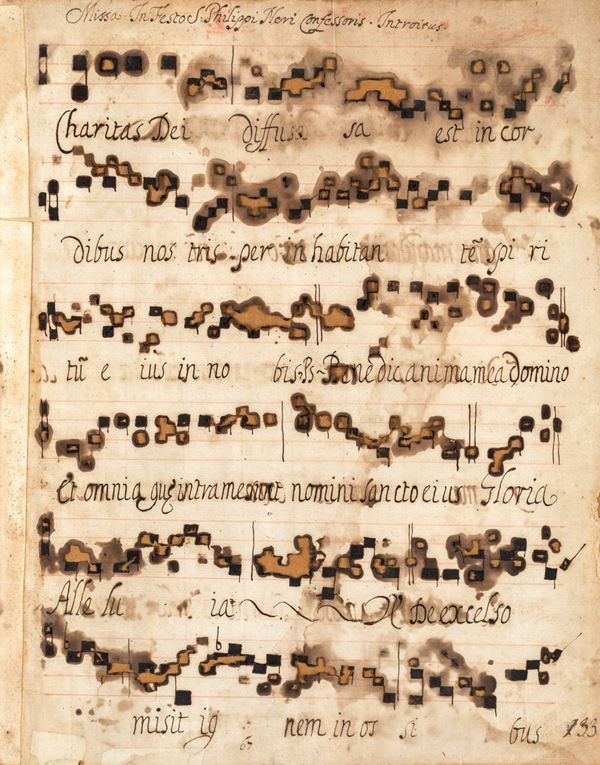 Missa. In Festo S. Philippi Neri Confessoris. Introitus.
Charitas Dei diffusa sa est in cor
dibus nos tris per in habitan tẽ spi ri
tũ e ius in no bis. Ps. Benedic anima mea Domino
et omnia que intra me sunt nomini san cto ei us Gloria
Alle lu ia ℣ De excelso
misit ig nem in os si bus 133
67